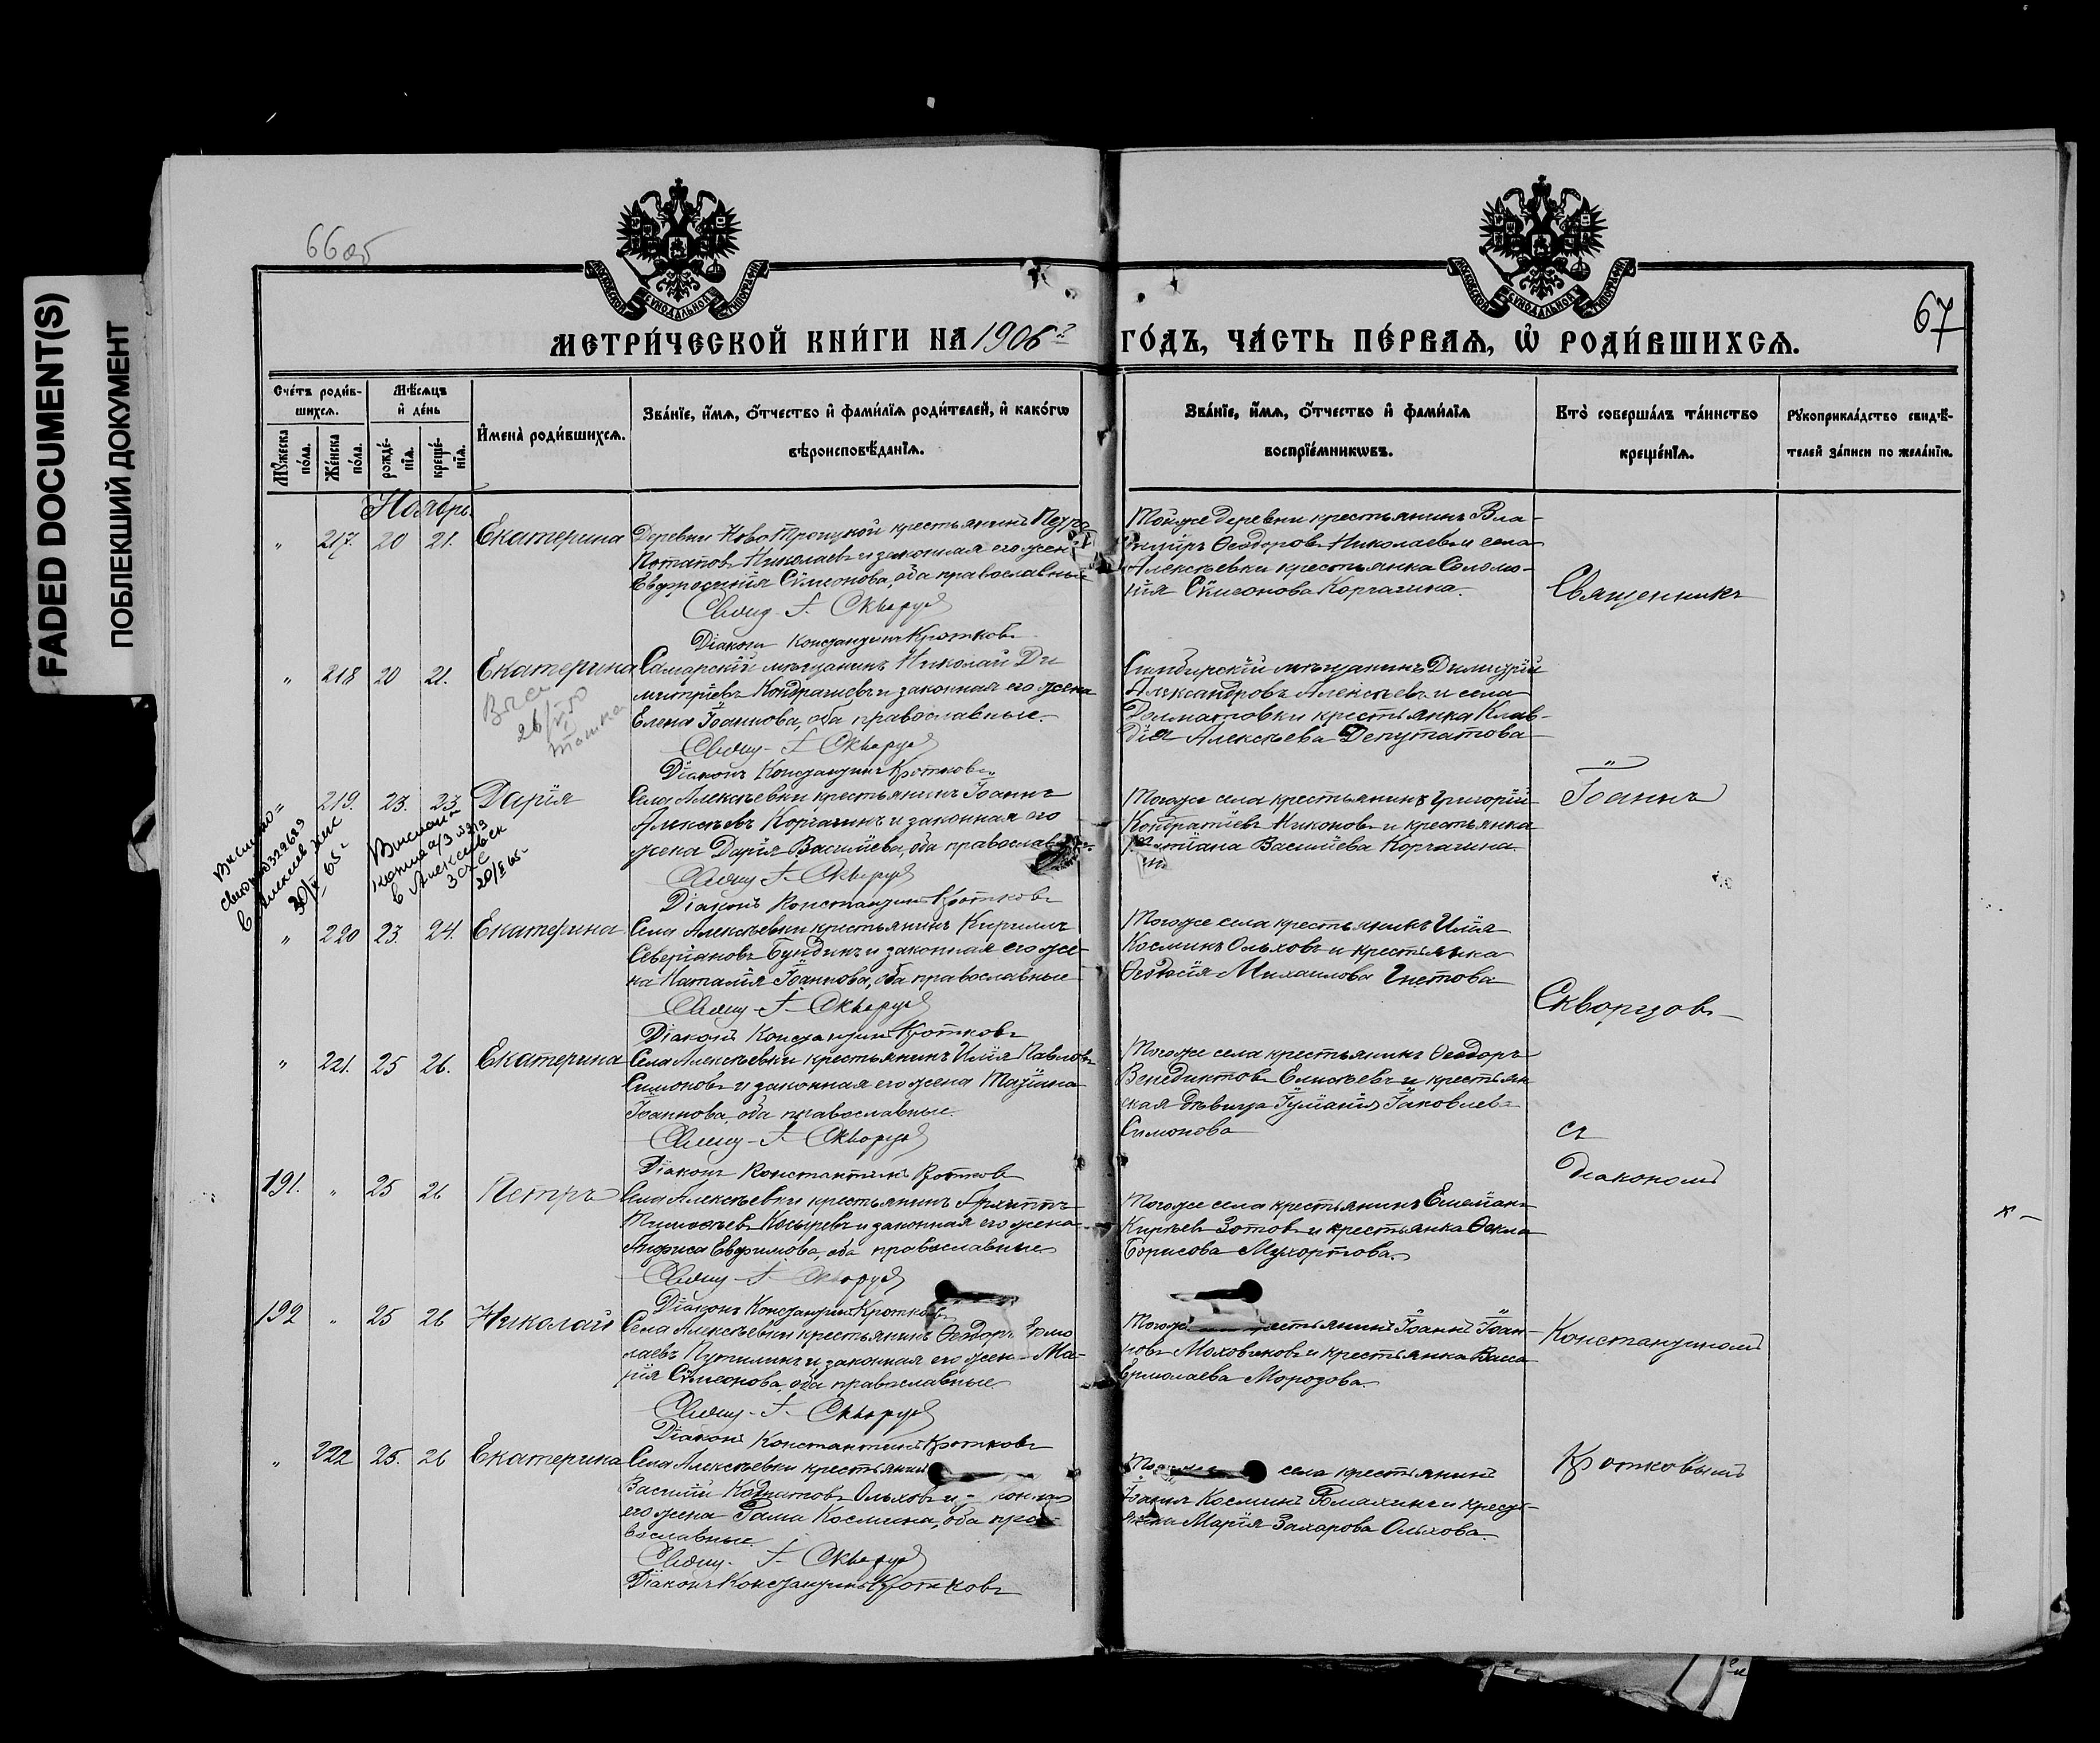 FADED DOCUMENT(S)
ПОБЛЕКШИЙ ДОКУМЕНТ
66об
67
МОСКОВСКОЙ СѴНОДАЛЬНОЙ ТИПОГРАФІИ
МОСКОВСКОЙ СѴНОДАЛЬНОЙ ТИПОГРАФІИ
МЕТРИ́ЧЕСКОЙ КНИ́ГИ НА 1906 г ГО́ДЪ, ЧА́СТЬ ПЕ́РВАѦ, Ѡ҆ РОДИ́ВШИХСѦ.
Сче́тъ роди́в-
шихсѧ.
Мꙋ́жеска по́ла.
Же́нска по́ла.
Мѣ́сѧцъ
и҆ де́нь
рожде́-
нїѧ.
креще́-
нїѧ.
И҆мена̀ роди́вшихсѧ.
Зва́нїе, и҆́мѧ, ѻ҆́тчество и҆ фами́лїѧ роди́телей, и҆ како́гѡ
вѣроисповѣ́данїѧ.
Зва́нїе, и҆́мѧ, ѻ҆́тчество и҆ фами́лїѧ
воспрїе́мникѡвъ.
Кто̀ соверша́лъ та́инство
креще́нїѧ.
Рꙋкоприкла́дство свидѣ́-
телей за́писи по жела́нїю.
Ноябрь.
" 217. 20 21. Екатерина
Деревни Ново Троицкой крестьянинъ Петръ
Потаповъ Николаевъ и законная его жена
Евфросинія Сѵмеонова, оба православные
Свящ. І. Скворцов
Діаконъ Константинъ Кротковъ
Тойже деревни крестьянинъ Вла-
диміръ Ѳеодоровъ Николаевъ и села
Алексѣевки крестьянка Соломо-
нія Сѵмеонова Корчагина.
" 218 20 21. Екатерина
26/VI 50
Самарскій мѣщанинъ Николай Ди
митріевъ Кондрачіевъ и законная его жена
Елена Іоаннова, оба православные.
Свящ. І. Скворцов
Діаконъ Константинъ Кротковъ
Симбирскій мѣщанинъ Димитрій
Александровъ Алексѣевъ и села
Долматовки крестьянка Клав-
дія Алексѣева Депутатова
" 219. 23. 23 Дарія
Села Алексѣевки крестьянинъ Іоаннъ
Алексѣевъ Корчагинъ и законная его
жена Дарія Васильева, оба православные
Свящ. І. Скворцов
Діаконъ Константинъ Кротковъ
Тогоже села крестьянинъ Григорій
Кондратіевъ Никоновъ и крестьянка
Васильева Корчагина.
в Алексеевск
20/X 65-
" 220 23. 24. Екатерина
Села Алексѣевки крестьянинъ Кириллъ
Северіановъ Бундинъ и законная его же-
на Наталія Іоаннова, оба православные
Свящ. І. Скворцов
Діаконъ Константинъ Кротковъ
Тогоже села крестьянинъ Илія
Косминъ Ольховъ и крестьянка
Ѳеодосія Михаилова Чистова
" 221. 25 26. Екатерина
Села Алексѣевки крестьянинъ Илія Павловъ
Симоновъ и законная его жена Татіана
Іоаннова, оба православные.
Свящ. І. Скворцов
Діаконъ Константинъ Кротковъ
Тогоже села крестьянинъ Ѳеодоръ
Венедиктовъ Елисѣевъ и крестьян
ская дѣвица Іуліанія Іаковлева
Симонова
191. " 25 26 Петръ
Села Алексѣевки крестьянинъ Архиппъ
Тимоѳеевъ Косыревъ и законная его жена
Анфиса Евфимова, оба православные
Свящ. І. Скворцов
Діаконъ Константинъ Кротковъ
Тогоже села крестьянинъ Емеліанъ
Кирѣевъ Зотовъ и крестьянка Ѳекла
Борисова Мухортова.
192 " 25 26 Николай
Села Алексѣевки крестьянинъ Ѳеодоръ Ермо
лаевъ Путилинъ и законная его жена Ма-
рія Сѵмеонова, оба православные
Свящ. І. Скворцов
Діаконъ Константинъ Кротковъ
Тогоже крестьянинъ Іоаннъ Іоан-
новъ Моховиковъ и крестьянка Васса
Ермолаева Морозова.
" 222 25. 26 Екатерина
Села Алексѣевки крестьянинъ
Василій Ольховъ и законная
его жена Космина, оба пра-
вославные.
Свящ. І. Скворцов
Діаконъ Константинъ Кротковъ
села крестьянинъ
Космин Ромахинъ и кресть-
янка Марія Захарова Ольхова.
Священникъ
Іоаннъ
Скворцовъ
съ
діакономъ
Константиномъ
Кротковымъ